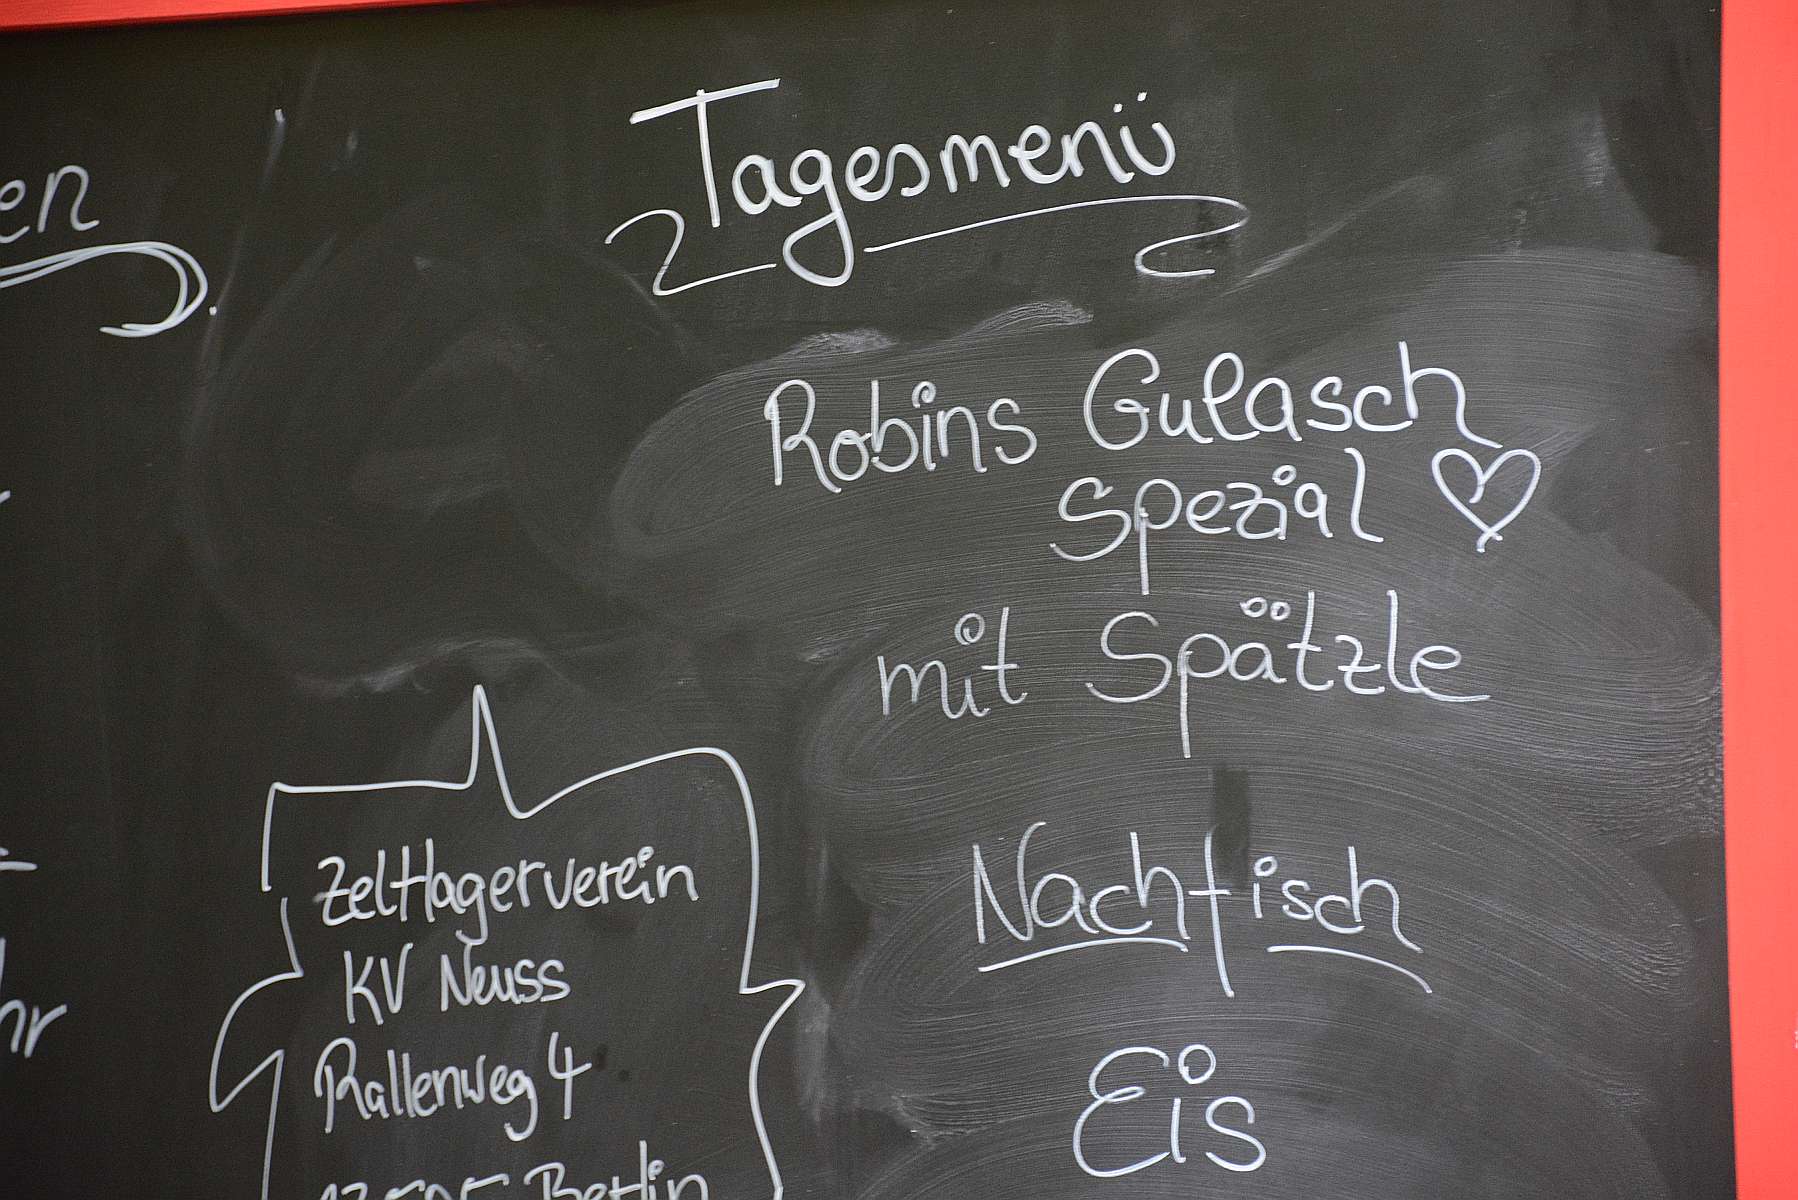 Tagesmenü
Robins Gulasch
Spezial
mit Spätzle
Nachtisch
Eis
Zeltlagerverein
KV Neuss
Rallenweg 4
Berlin